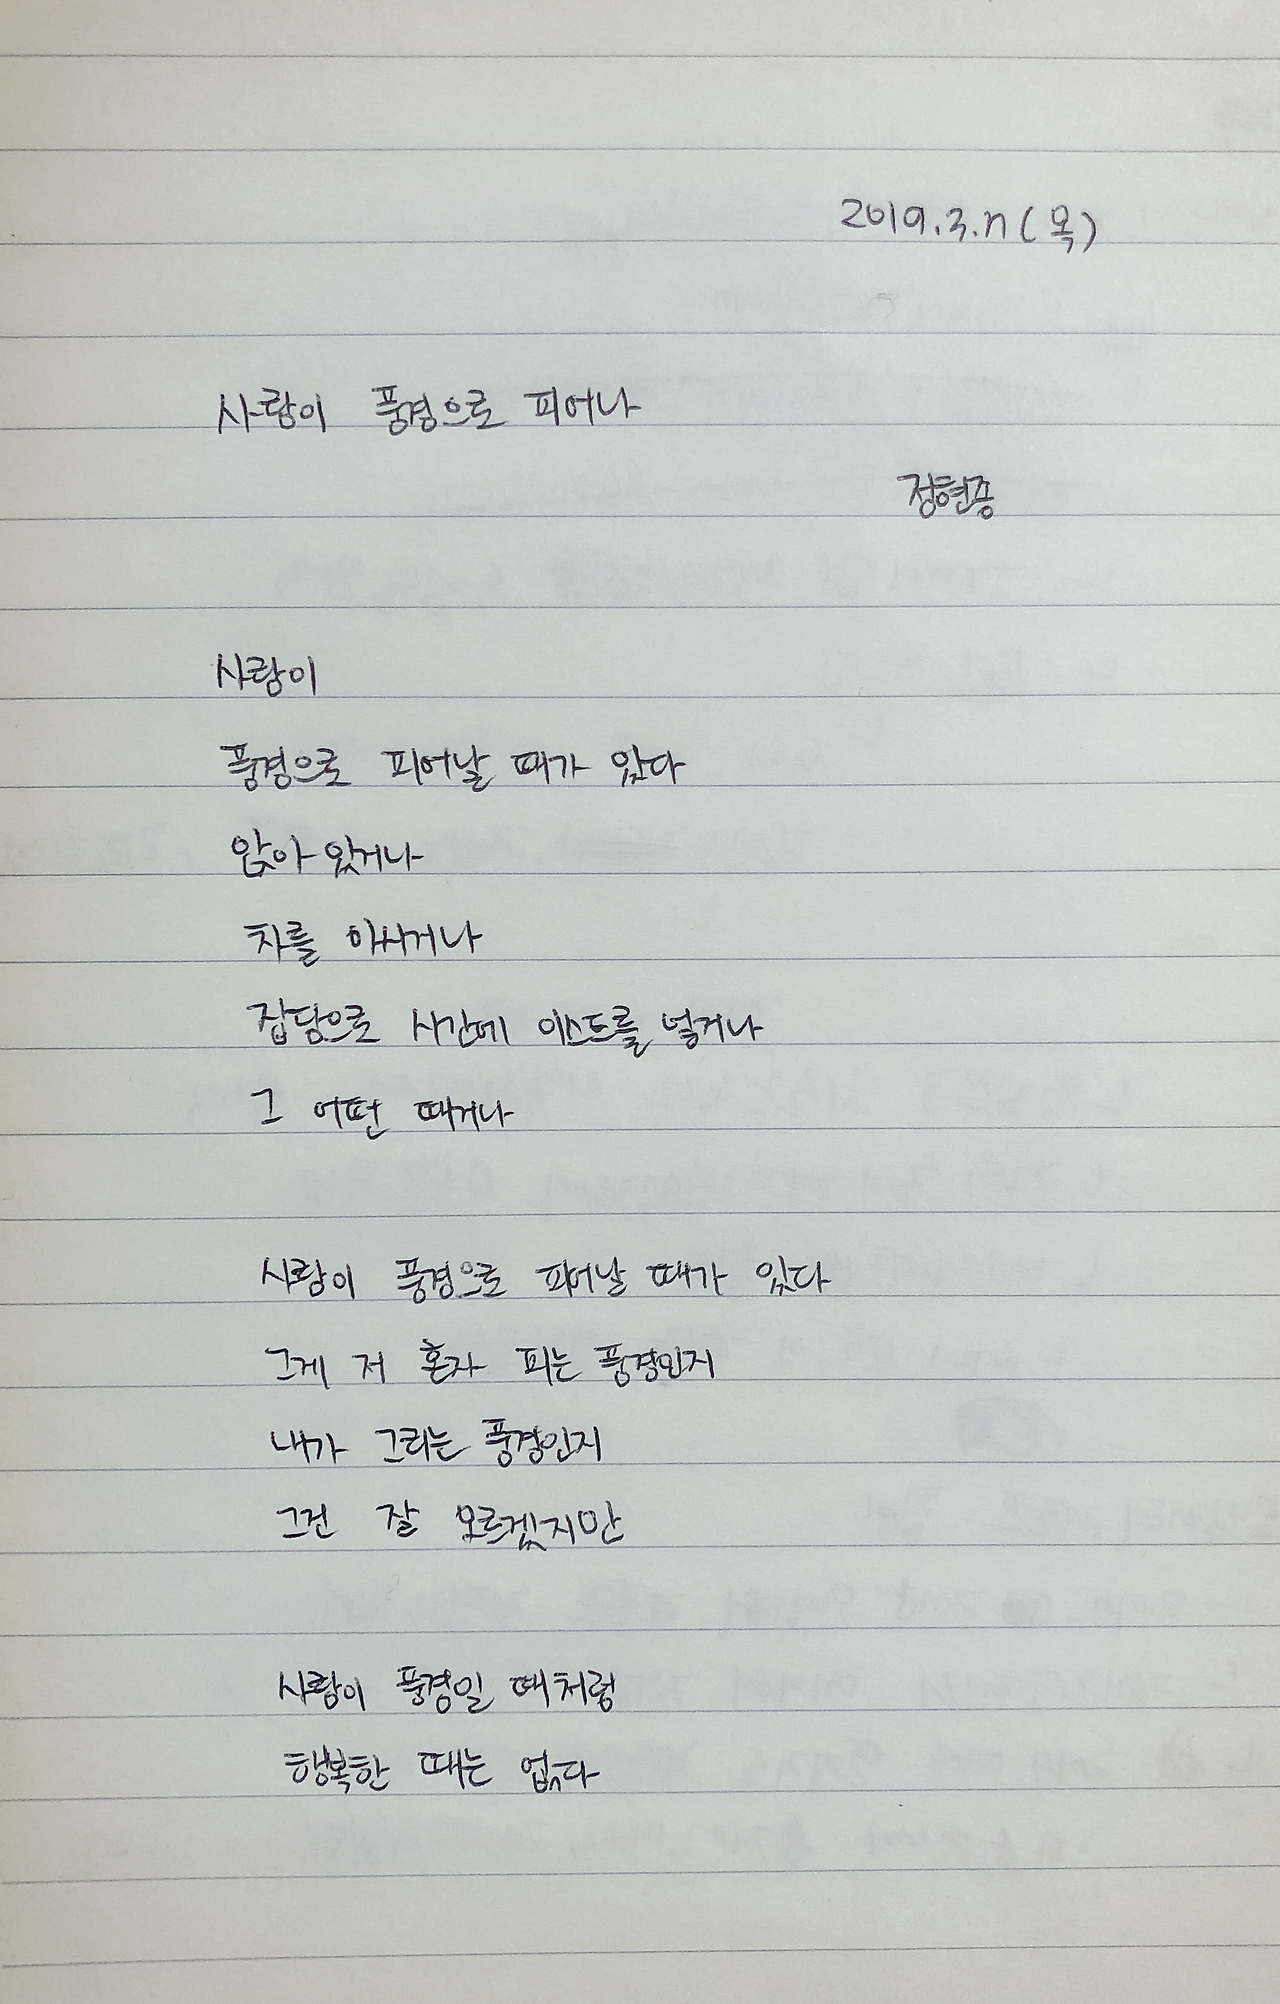 2019.3.7(목)
사람이 풍경으로 피어나
정현종
사람이
풍경으로 피어날 때가 있다
앉아 있거나
차를 마시거나
잡담으로 시간에 이스트를 넣거나
그 어떤 때거나
사람이 풍경으로 피어날 때가 있다
그게 저 혼자 피는 풍경인지
내가 그리는 풍경인지
그건 잘 모르겠지만
사람이 풍경일 때처럼
행복한 때는 없다